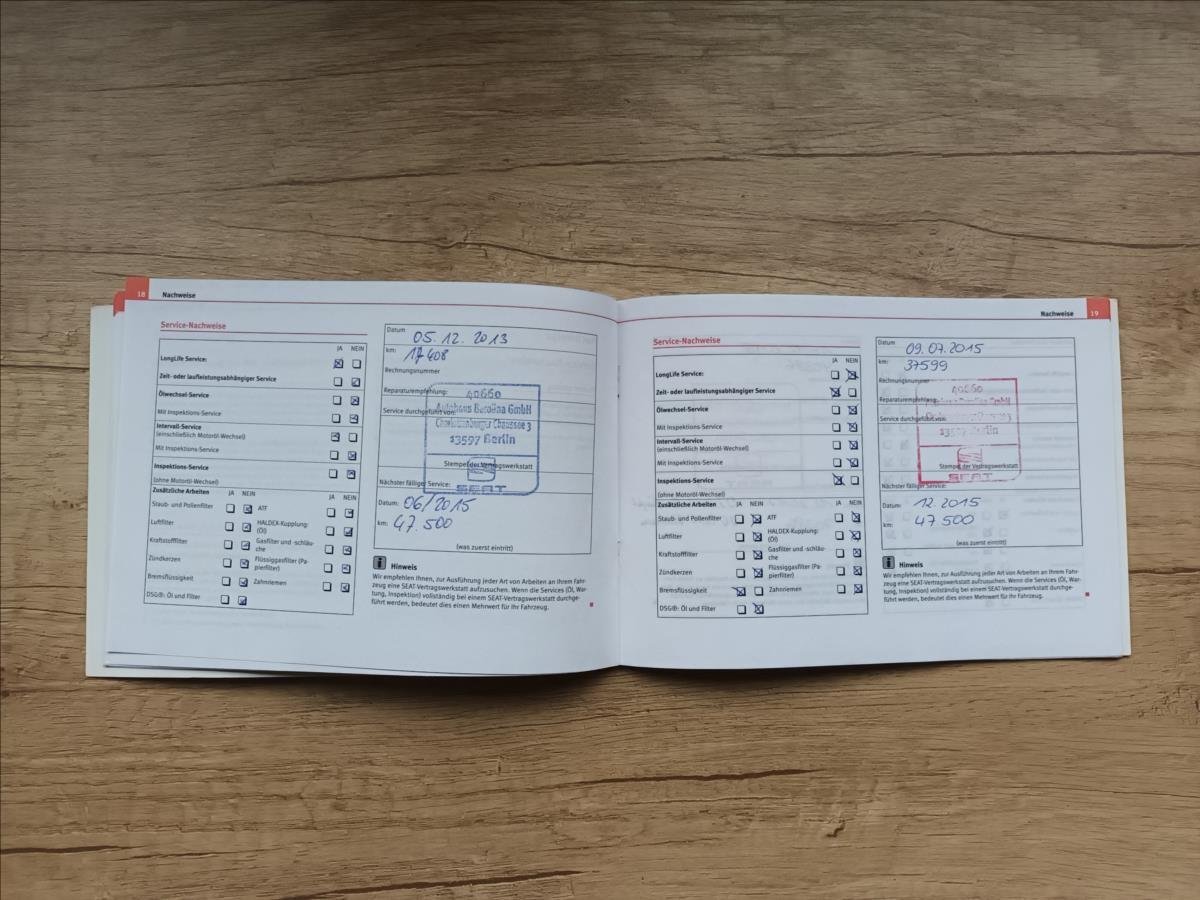 18 Nachweise
Service-Nachweise
JA NEIN
LongLife Service:
Zeit- oder laufleistungsabhängiger Service
Ölwechsel-Service
Mit Inspektions-Service
Intervall-Service
(einschließlich Motoröl-Wechsel)
Mit Inspektions-Service
Inspektions-Service
(ohne Motoröl-Wechsel)
Zusätzliche Arbeiten JA NEIN JA NEIN
Staub- und Pollenfilter ATF
Luftfilter HALDEX-Kupplung:
(Öl)
Kraftstofffilter Gasfilter und -schläu-
che
Zündkerzen Flüssiggasfilter (Pa-
pierfilter)
Bremsflüssigkeit Zahnriemen
DSG®: Öl und Filter
Datum 05.12.2013
km: 17408
Rechnungsnummer
Reparaturempfehlung:
Service durchgeführt von:
40660
Autohaus Barolina GmbH
Charlottenburger Chaussee 3
13597 Berlin
Stempel der Vertragswerkstatt
SEAT
Nächster fälliger Service:
Datum: 06/2015
km: 47.500
(was zuerst eintritt)
Hinweis
Wir empfehlen Ihnen, zur Ausführung jeder Art von Arbeiten an Ihrem Fahr-
zeug eine SEAT-Vertragswerkstatt aufzusuchen. Wenn die Services (Öl, War-
tung, Inspektion) vollständig bei einem SEAT-Vertragswerkstatt durchge-
führt werden, bedeutet dies einen Mehrwert für Ihr Fahrzeug.
Nachweise 19
Service-Nachweise
JA NEIN
LongLife Service:
Zeit- oder laufleistungsabhängiger Service
Ölwechsel-Service
Mit Inspektions-Service
Intervall-Service
(einschließlich Motoröl-Wechsel)
Mit Inspektions-Service
Inspektions-Service
(ohne Motoröl-Wechsel)
Zusätzliche Arbeiten JA NEIN JA NEIN
Staub- und Pollenfilter ATF
Luftfilter HALDEX-Kupplung:
(Öl)
Kraftstofffilter Gasfilter und -schläu-
che
Zündkerzen Flüssiggasfilter (Pa-
pierfilter)
Bremsflüssigkeit Zahnriemen
DSG®: Öl und Filter
Datum 09.07.2015
km: 37599
Rechnungsnummer
Reparaturempfehlung:
Service durchgeführt von:
40660
13597 Berlin
Stempel der Vertragswerkstatt
SEAT
Nächster fälliger Service:
Datum: 12.2015
km: 47500
(was zuerst eintritt)
Hinweis
Wir empfehlen Ihnen, zur Ausführung jeder Art von Arbeiten an Ihrem Fahr-
zeug eine SEAT-Vertragswerkstatt aufzusuchen. Wenn die Services (Öl, War-
tung, Inspektion) vollständig bei einem SEAT-Vertragswerkstatt durchge-
führt werden, bedeutet dies einen Mehrwert für Ihr Fahrzeug.